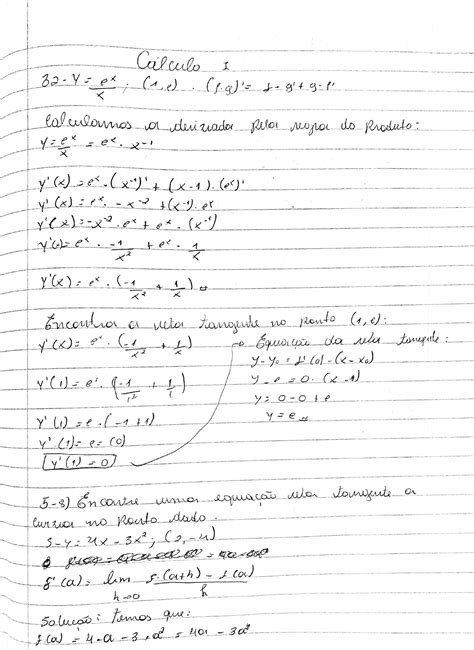 Cálculo I
32 - y = e^x/x ; (1,e) . (f.g)' = f - g' + g - f'
Calculamos a derivada pela regra do Produto:
y = e^x/x = e^x . x^-1
y'(x) = e^x . (x^-1)' + (x-1) . (e^x)'
y'(x) = e^x . -x^-2 + (x^-1) . e^x
y'(x) = -x^-2 . e^x + e^x . (x^-1)
y'(x) = e^x . -1/x² + e^x . 1/x
y'(x) = e^x . (-1/x² + 1/x)
Encontrar a reta tangente no ponto (1,e):
y'(x) = e^x . (-1/x² + 1/x)
y'(1) = e¹ . (-1/1² + 1/1)
y'(1) = e . (-1+1)
y'(1) = e = (0)
y'(1) = 0
Equação da reta tangente:
y - y₀ = f'(0) - (x - x₀)
y - e = 0 . (x - 1)
y = 0 - 0 + e
y = e
5-8) Encontre uma equação reta tangente a
curva no Ponto dado.
5 - y = 4x - 3x² ; (2, -4)
f'(a) = lim h→0 f.(a+h) - f(a) / h
Solução: temos que:
f(a) = 4 . a - 3 . a² = 4a - 3a²